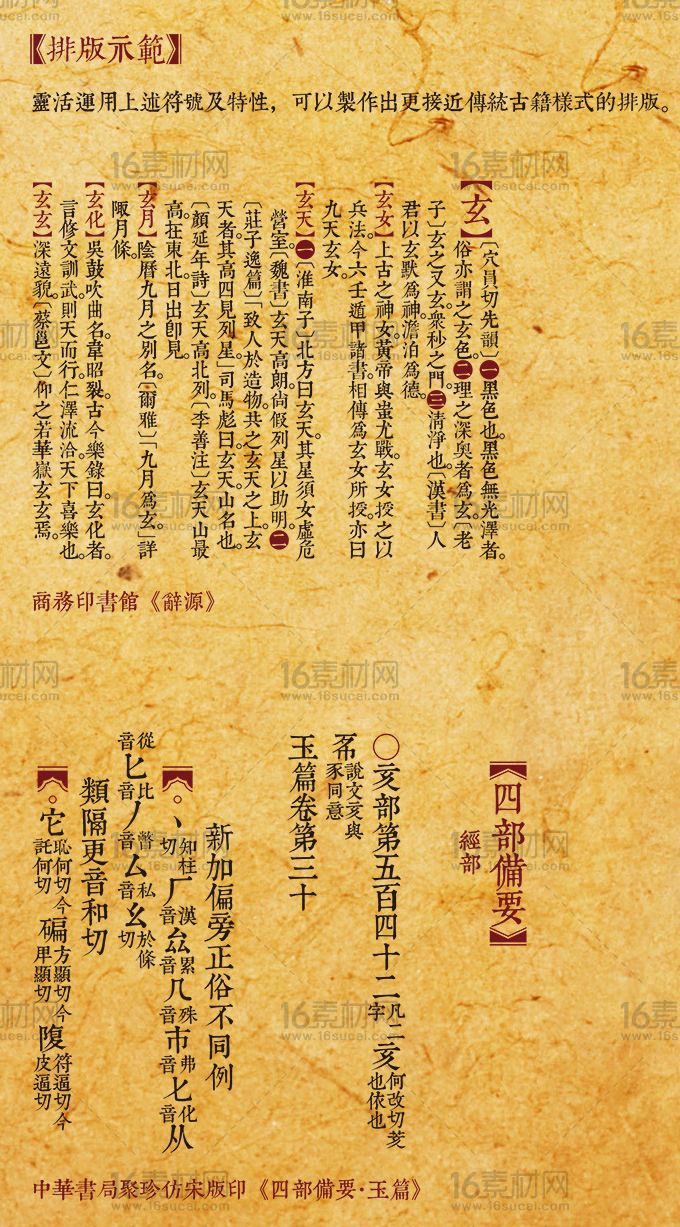 【排版示範】
靈活運用上述符號及特性，可以製作出更接近傳統古籍樣式的排版。
【玄】〔穴員切先韻〕一黑色也。黑色無光澤者。
俗亦謂之玄色。二理之深奧者爲玄。〔老
子〕玄之又玄。衆秒之門。三清淨也。〔漢書〕人
君以玄默爲神。澹泊爲德。
【玄女】上古之神女。黃帝與蚩尤戰。玄女授之以
兵法。今六壬遁甲諸書。相傳爲玄女所授。亦曰
九天玄女。
【玄天】一〔淮南子〕北方曰玄天。其星須女虛危
營室。〔魏書〕玄天高朗。尙假列星以助明。二
〔莊子逸篇〕「致人於造物。共之玄天之上。玄
天者。其高四見列星」司馬彪曰。玄天。山名也。
〔顏延年詩〕玄天高北列。〔李善注〕玄天山最
高。在東北。日出卽見。
【玄月】陰曆九月之别名。〔爾雅〕「九月爲玄。」詳
陬月條。
【玄化】吳鼓吹曲名。韋昭裂。古今樂錄曰。玄化者。
言修文訓武。則天而行。仁澤流洽。天下喜樂也。
【玄玄】深遠貌。〔蔡邕文〕仰之若華嶽玄玄焉。
商務印書館《辭源》
【四部備要】
經部
〇亥部第五百四十二凡二字亥何改切荄也依也
㐪說文亥與豕同意
玉篇卷第三十
新加偏旁正俗不同例
【。丶知柱切厂漢音厽累音几殊音巿弗音匕化音从
從音匕比音丿瞥音厶私音幺於條切
類隔更音和切
【。它恥何切今託何切碥方顯切今甲顯切䧔符逼切今皮逼切
中華書局聚珍仿宋版印《四部備要·玉篇》
16素材网
www.16sucai.com